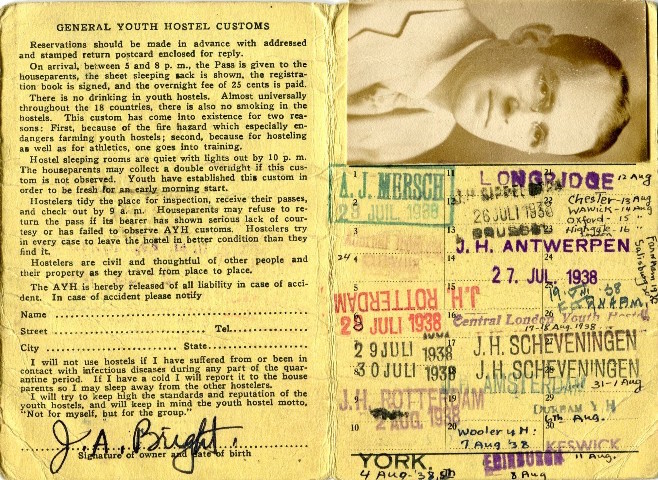 GENERAL YOUTH HOSTEL CUSTOMS
Reservations should be made in advance with addressed
and stamped return postcard enclosed for reply.
On arrival, between 5 and 8 p. m., the Pass is given to the
houseparents, the sheet sleeping sack is shown, the registra-
tion book is signed, and the overnight fee of 25 cents is paid.
There is no drinking in youth hostels. Almost universally
throughout the 18 countries, there is also no smoking in the
hostels. This custom has come into existence for two rea-
sons: First, because of the fire hazard which especially en-
dangers farming youth hostels; second, because for hosteling
as well as for athletics, one goes into training.
Hostel sleeping rooms are quiet with lights out by 10 p. m.
The houseparents may collect a double overnight if this cus-
tom is not observed. Youth have established this custom in
order to be fresh for an early morning start.
Hostelers tidy the place for inspection, receive their passes,
and check out by 9 a. m. Houseparents may refuse to re-
turn the pass if its bearer has shown serious lack of court-
esy or has failed to observe AYH customs. Hostelers try
in every case to leave the hostel in better condition than they
find it.
Hostelers are civil and thoughtful of other people and
their property as they travel from place to place.
The AYH is hereby released of all liability in case of acci-
dent. In case of accident please notify
Name
Street Tel.
City State
I will not use hostels if I have suffered from or been in
contact with infectious diseases during any part of the quar-
antine period. If I have a cold I will report it to the house
parents so I may sleep away from the other hostelers.
I will try to keep high the standards and reputation of the
youth hostels, and will keep in mind the youth hostel motto,
"Not for myself, but for the group."
J. A. Bright.
Signature of owner and date of birth
A. J. MERSCH
23 JUIL 1938
LONGRIDGE 12 Aug
26 JULI 1938
Chester - 13 Aug
WAWICK - 14 Aug
Oxford - 15 "
Highgate - 16 "
J. H. ANTWERPEN
27 JUL 1938
J.H. ROTTERDAM
28 JULI 1938
Central London Youth Hostel
17-18 Aug. 1938
29 JULI 1938
J.H. SCHEVENINGEN
30 JULI 1938
J.H. SCHEVENINGEN
AMSTERDAM
31-1 Aug
J.H. ROTTERDAM
2 AUG. 1938
DURHAM Y H
6th Aug.
Wooler Y H:
7 Aug '38
KESWICK
11 Aug.
YORK.
4 Aug - '38, 5th
EDINBURGH
8 Aug